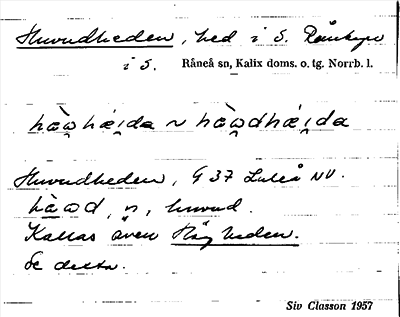 Huvudheden, hed i S. Rånbyn
i S. Råneå sn, Kalix doms. o. tg. Norrb. l.
hὰωhǽi̯da ~ hὰωdhǽi̯da
Huvudheden, G 37 Luleå NV.
hὰωd, n, huvud.
Kallas även Häg heden.
Se detta.
Siv Classon 1957